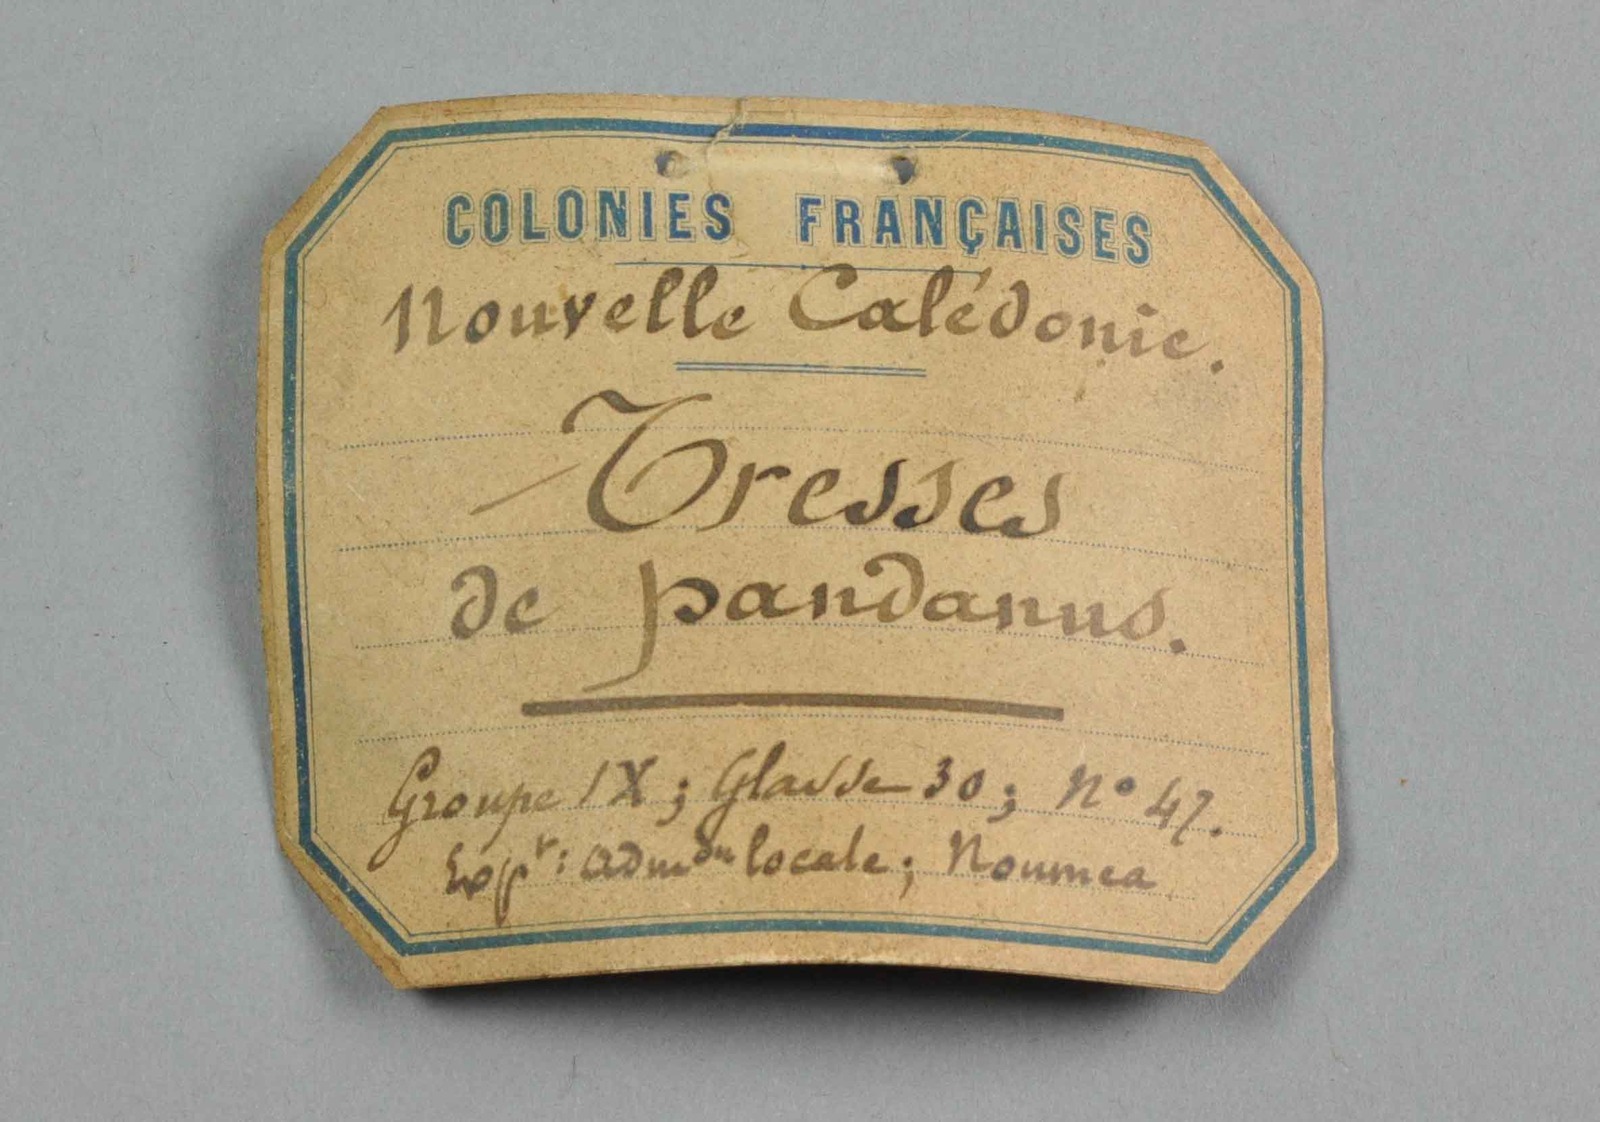 COLONIES FRANÇAISES
Nouvelle Calédonie.
Tresses
de pandanus.
Groupe IX; Classe 30; No 47.
Expr: admon locale; Noumea